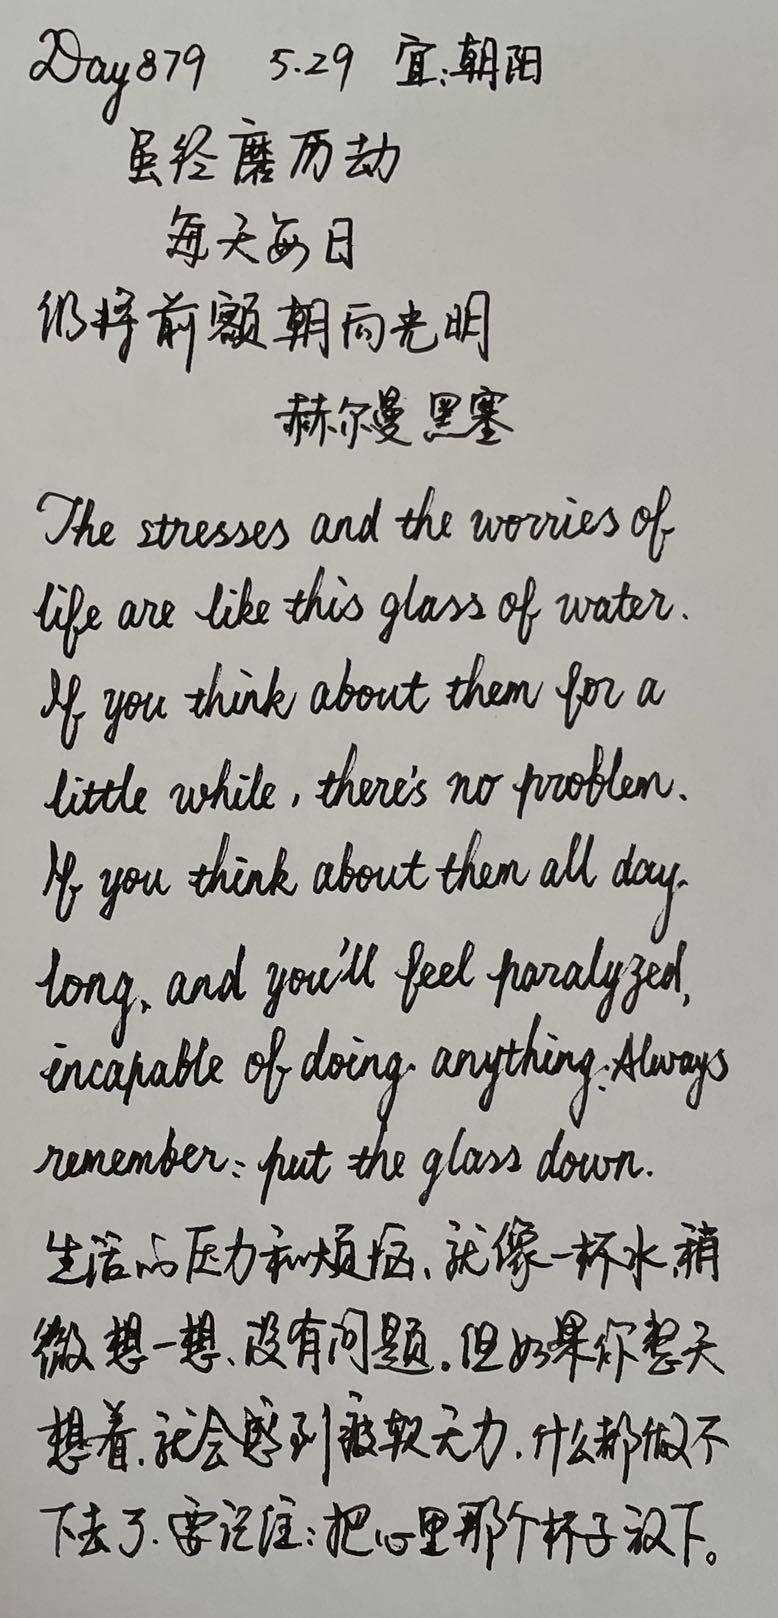 Day879 5.29 宜:朝阳
虽经磨历劫
每天每日
仍将前额朝向光明
赫尔曼 黑塞
The stresses and the worries of
life are like this glass of water.
If you think about them for a
little while, there's no problem.
If you think about them all day
long, and you'll feel paralyzed,
incapable of doing anything. Always
remember: put the glass down.
生活的压力和烦恼、就像一杯水,稍
微想一想、没有问题。但如果你整天
想着,就会感到疲软无力,什么都做不
下去了.要记住:把心里那个杯子放下。